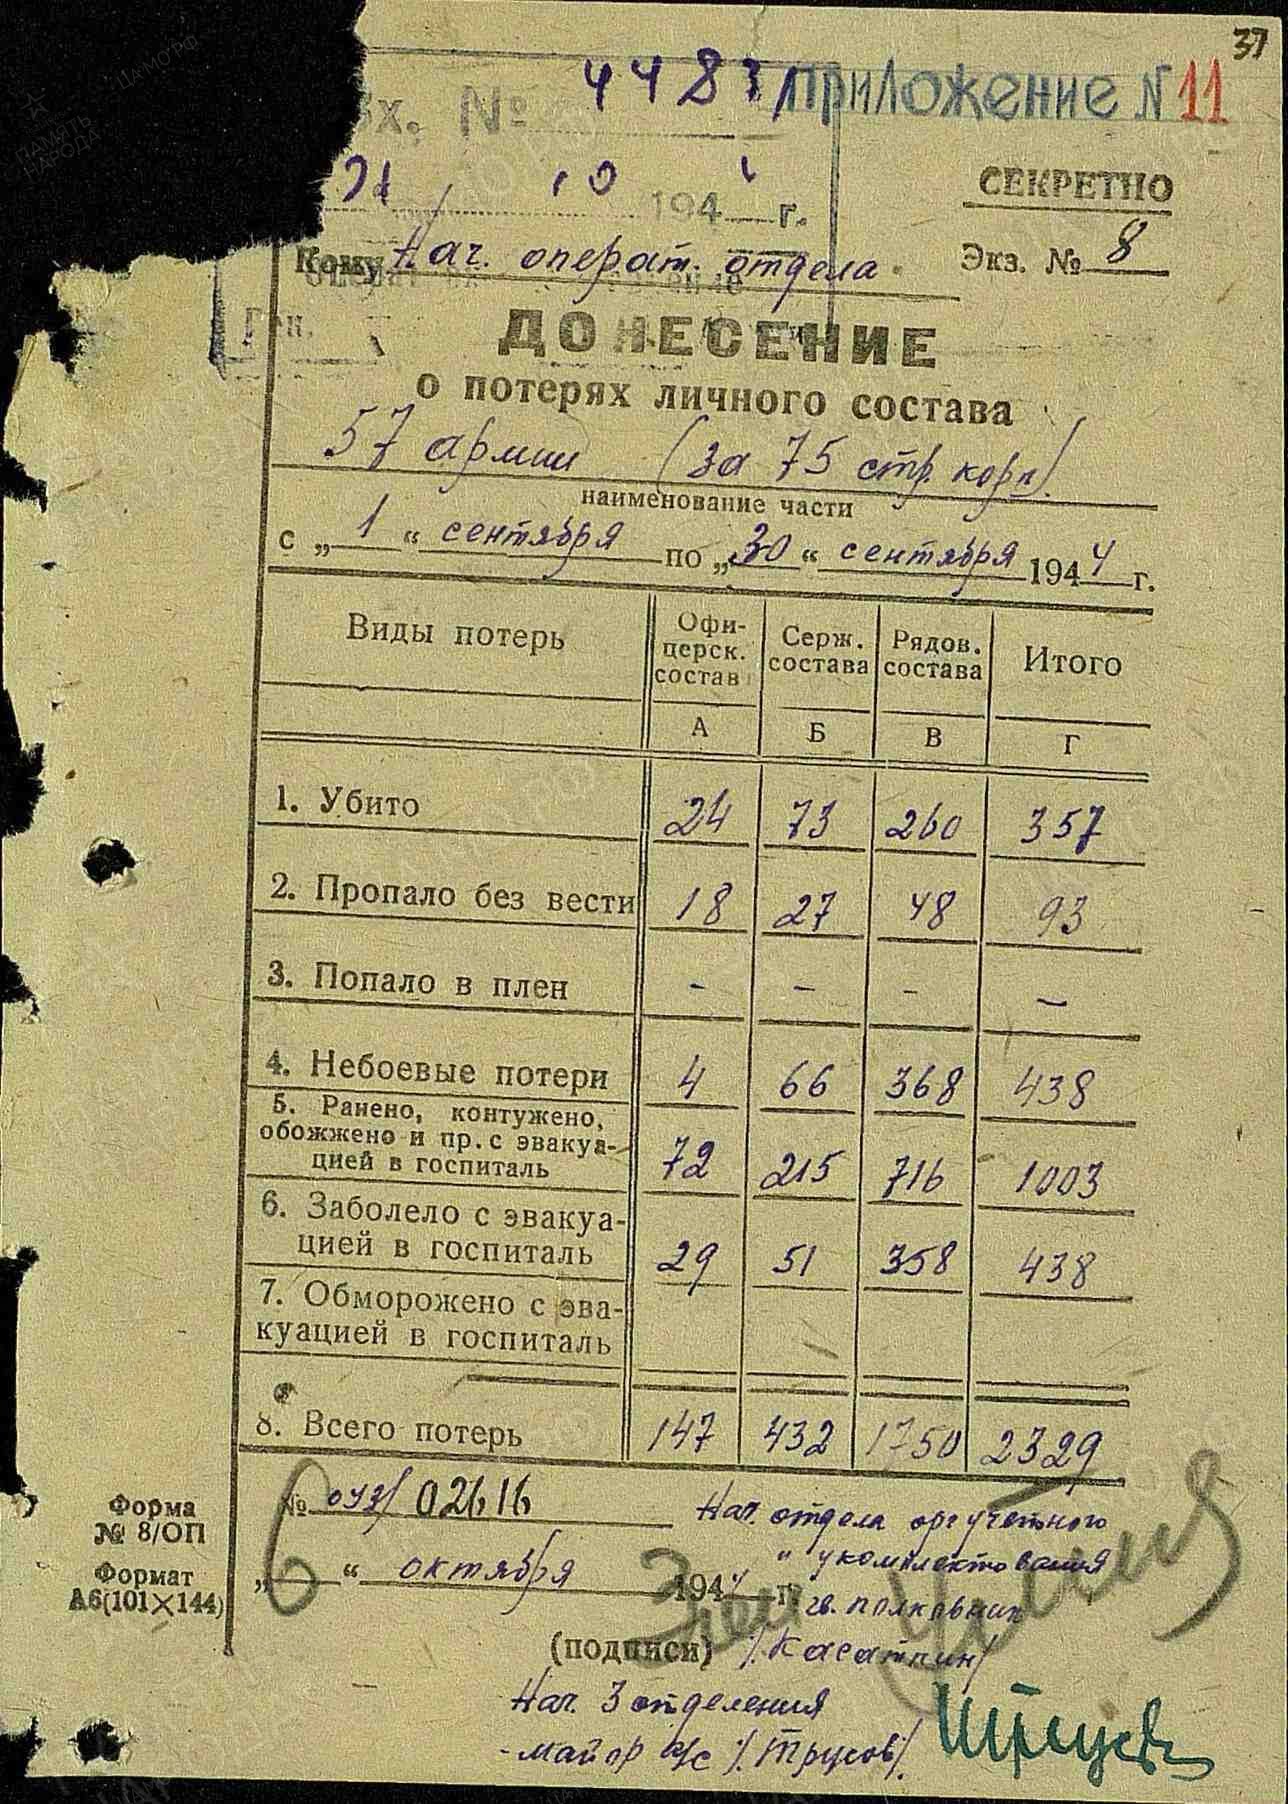 37
Вх. № 44831 приложение N 11
21 10 194 г.
СЕКРЕТНО
Кому Нач. операт. отдела
Экз. № 8
Ген.
ДОНЕСЕНИЕ
о потерях личного состава
57 армии (за 75 стр. корп)
наименование части
с „ 1 “ сентября по „ 30 “ сентября 1944 г.
Виды потерь | Офи-церск. состав | Серж. состава | Рядов. состава | Итого
А | Б | В | Г
1. Убито 24 73 260 357
2. Пропало без вести 18 27 48 93
3. Попало в плен - - - -
4. Небоевые потери 4 66 368 438
5. Ранено, контужено,
обожжено и пр. с эвакуа-
цией в госпиталь 72 215 716 1003
6. Заболело с эвакуа-
цией в госпиталь 29 51 358 438
7. Обморожено с эва-
куацией в госпиталь
8. Всего потерь 147 432 1750 2329
Форма
№ 8/ОП
Формат
А6(101×144)
№ 02616
Нач. отдела оргучетного
" укомплектования
„ 6 “ октября 1944 г.
гв. полковник
(подписи) /Касаткин/
Нач. 3 отделения
майор а/с /Трусов/.
ПАМЯТЬ
НАРОДА
ЦАМО.РФ